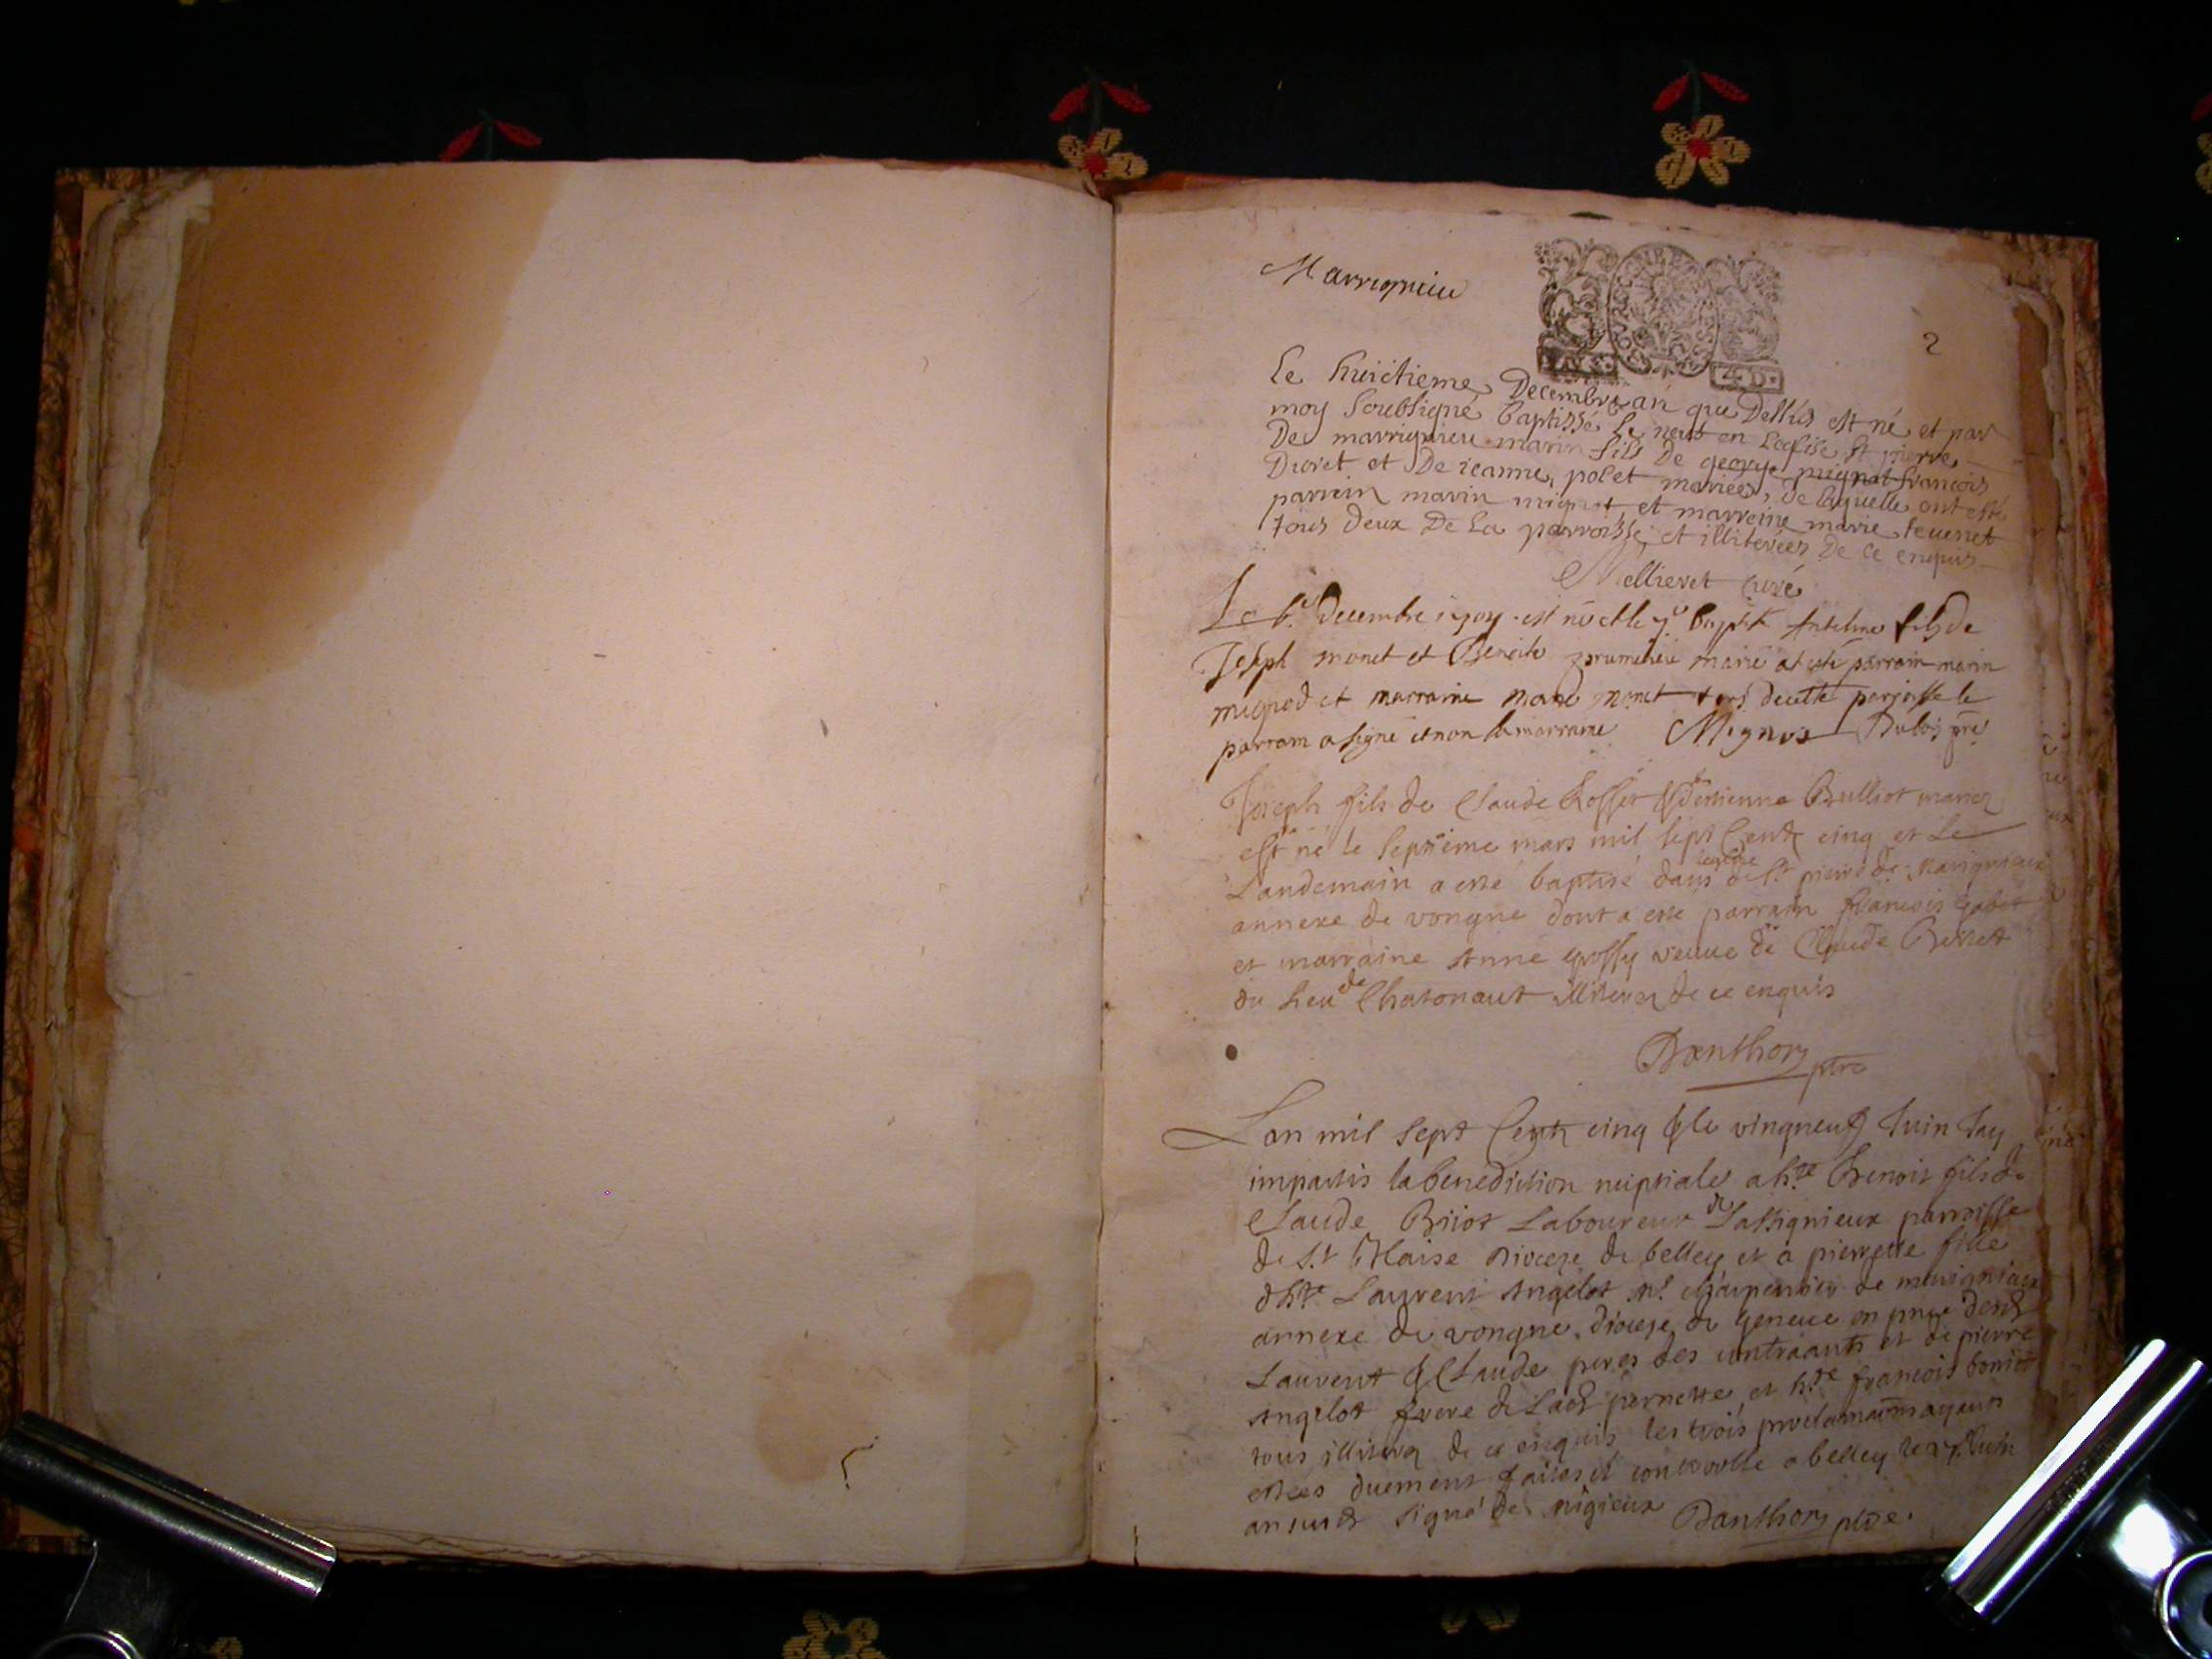 Marrignieu
2
Le huictieme Decembre an que Dessus est né et par
moy Soubsigné baptissé le neuf en Leglise St pierre
De marrignieu marin fils De george mignot francois
Divret et De ieanne polet mariées, de laquelle ont esté
parrein marin mignot et marreine marie teuenet
tous deux De La parroisse et illiterées De ce enquis
Mellieret curé
Le 6e decembre 1704 est né et le 7e baptisé Antelme fils de
Joseph monet et Benoite marié at esté parrain marin
mignod et marraine marie monet tous deux parroisse le
parrain a signé et non la marraine Mignos Dubois pre
Joseph fils de Claude Rosset & destienna Bulliot mariez
est né le Septieme mars mil sept Centz cinq et Le
Landemain a esté baptisé dans leglise de St pierre de Marignieux
annexe de vongne dont a esté parrain francois gabet
et marraine Anne grossy veuue de Claude Berret
du Lieu de Chatonaut illiterez de ce enquis
Danthon ptre
Lan mil Sept Centz cinq & le vingneuf Juin Jay
impartis la benediction nuptiale a hte Benoit fils de
Claude Briot Laboureur de Lassignieux parroisse
de St Blaise dioceze de belley et a pierrette fille
dhte Laurent Angelot me charpentier de marignieux
annexe de vongne, dioceze de geneue en pnce desd
Laurent & Claude peres des contraants et de pierre
Angelot frere de Lad pernette et hte francois boniot
tous illiterez de ce enquis les trois proclamaons ayants
estées duement faites et controolle a belley le 27 Juin
an susd signé de migieux Danthon ptre.